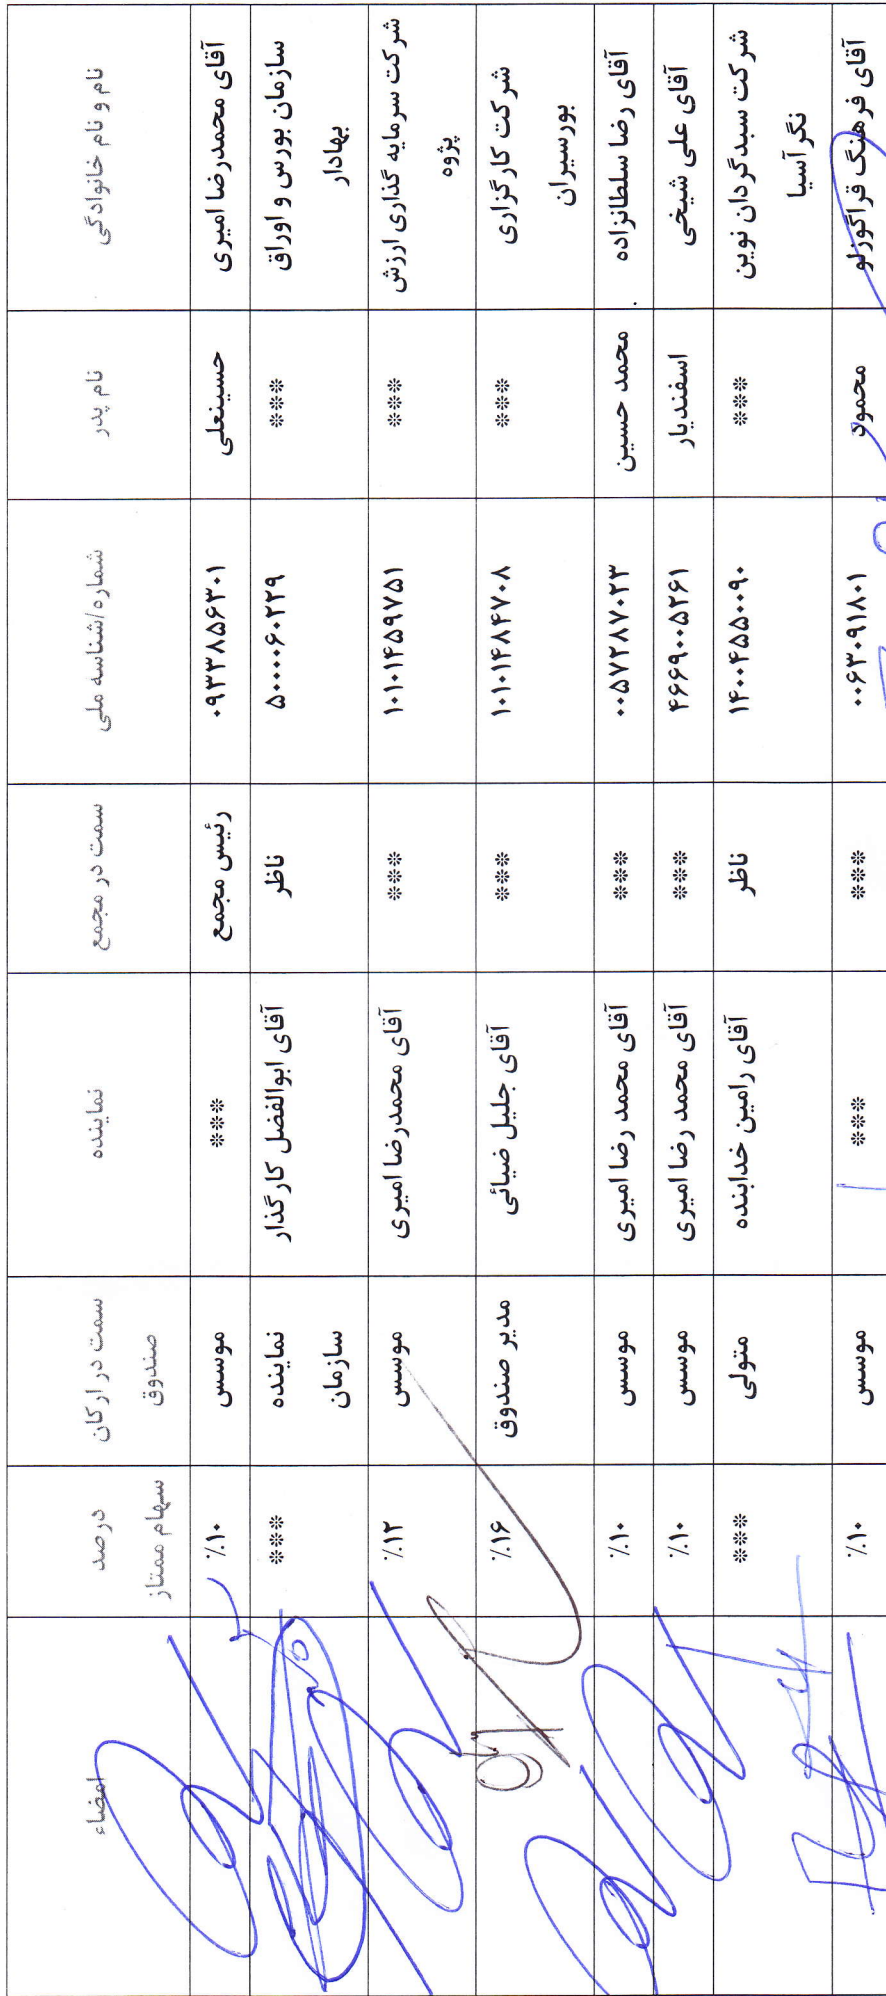 نام و نام خانوادگی نام پدر شماره/شناسه ملی سمت در مجمع نماینده سمت در ارکان صندوق درصد سهام ممتاز امضاء
آقای محمدرضا امیری حسینعلی ۰۹۳۳۸۵۶۳۰۱ رئیس مجمع *** موسس ٪۱۰
سازمان بورس و اوراق بهادار *** ۵۰۰۰۰۶۰۲۲۹ ناظر آقای ابوالفضل کارگذار نماینده سازمان ***
شرکت سرمایه گذاری ارزش پژوه *** ۱۰۱۰۱۴۵۹۷۵۱ *** آقای محمدرضا امیری موسس ٪۱۲
شرکت کارگزاری بورسیران *** ۱۰۱۰۱۴۸۴۷۰۸ *** آقای جلیل ضیائی مدیر صندوق ٪۱۶
آقای رضا سلطانزاده محمد حسین ۰۰۵۷۲۸۷۰۲۳ *** آقای محمد رضا امیری موسس ٪۱۰
آقای علی شیخی اسفندیار ۴۶۶۹۰۰۵۲۶۱ *** آقای محمد رضا امیری موسس ٪۱۰
شرکت سبدگردان نوین نگر آسیا *** ۱۴۰۰۴۵۵۰۰۹۰ ناظر آقای رامین خدابنده متولی ***
آقای فرهنگ قراگوزلو محمود ۰۰۶۳۰۹۱۸۰۱ *** *** موسس ٪۱۰